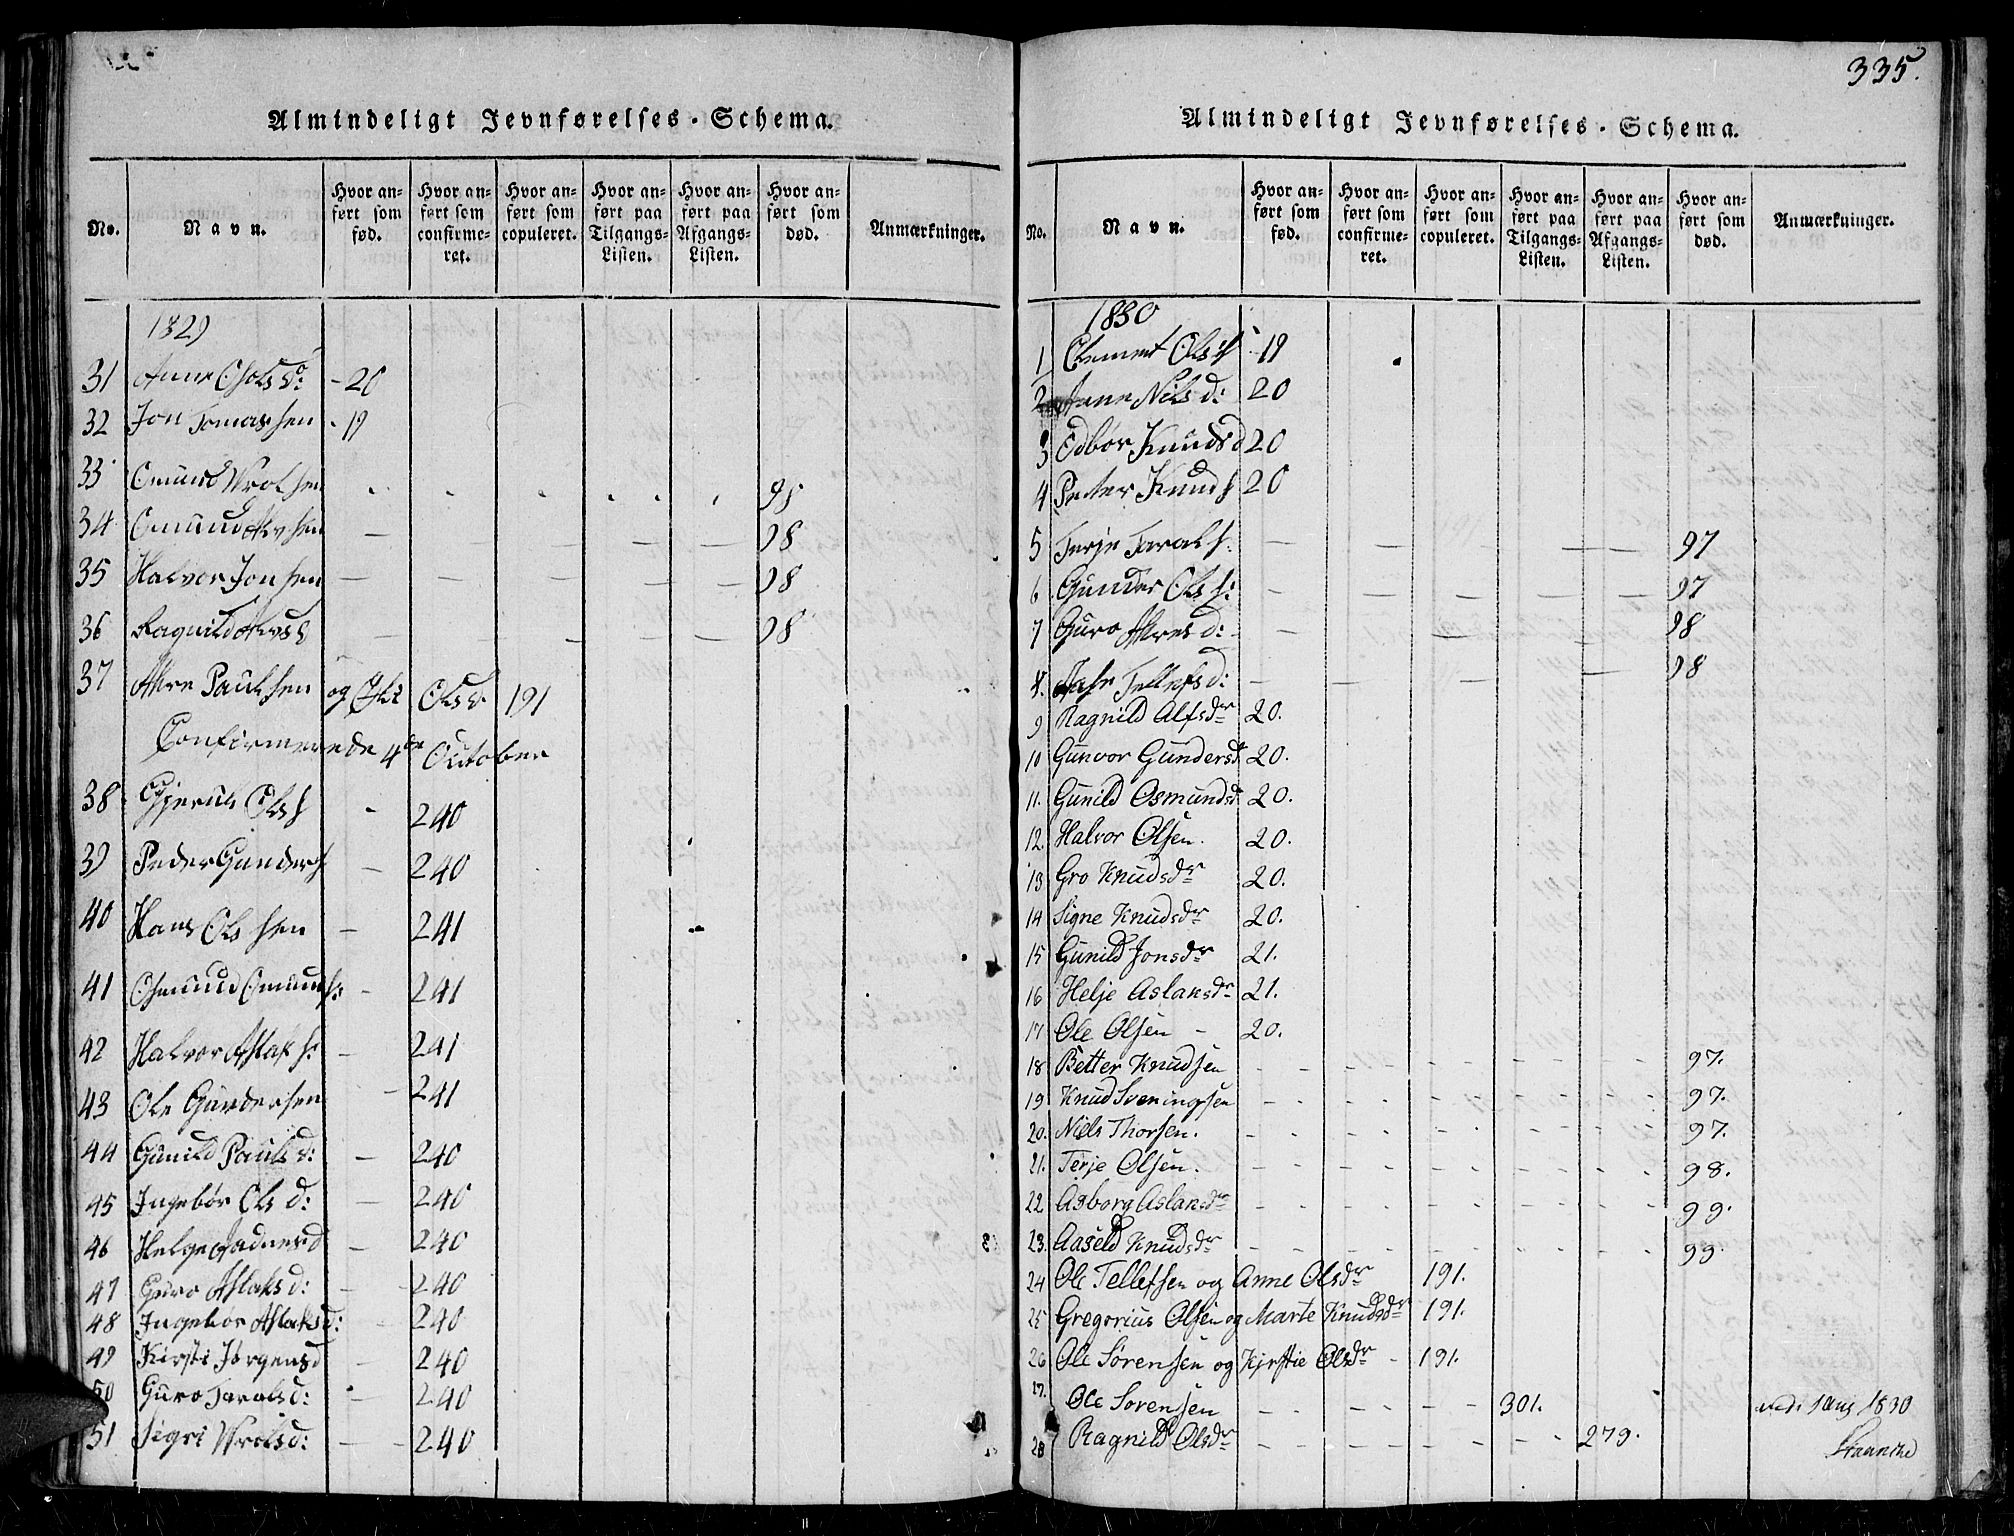 335.
Almindeligt Jevnførelses-Schema.
No. Navn. Hvor anført som fød. Hvor anført som confirmeret. Hvor anført som copuleret. Hvor anført paa Tilgangs-Listen. Hvor anført paa Afgangs-Listen. Hvor anført som død. Anmærkninger.
1829
31 Anne Olsd: - 20
32 Jon Tomassen - 19
33 Omund Wrolsen 98
34 Omund 98
35 Halvor Jonsen 98
36 Ragnild 98
37 Akre Paulsen og Olsd. 191
Confirmerede 4de October
38 Gjeruls Olss - 240
39 Peder Gunders - 240
40 Hans Olssen - 241
41 Osmund Omunds: - 241
42 Halvor Aslaks: - 241
43 Ole Gundersen - 241
44 Gunild Paulsd: - 240
45 Ingebor Olsd: - 240
46 Helge - 240
47 Guro Aslaksd: - 240
48 Ingebor Aslaksd: - 240
49 Kirsti Jörgensd - 240
50 Guro Taralsd: - 240
51 Sigri Wrolsd: - 240
Almindeligt Jevnførelses-Schema.
No. Navn. Hvor anført som fød. Hvor anført som confirmeret. Hvor anført som copuleret. Hvor anført paa Tilgangs-Listen. Hvor anført paa Afgangs-Listen. Hvor anført som død. Anmærkninger.
1830
1 Clement Ols 19
2 Anne Nilsd: 20
3 Edbör Knudsd 20
4 Peter Knuds 20
5 Terje Tarals: 97
6 Gunder Olss: 97
7 Guro Akresd: 98
8. Tellefsd: 98
9 Ragnild Alfsdr 20.
10 Gunvor Gundersd 20.
11. Gunild Osmundsd 20.
12. Halvor Olsen. 20.
13 Gro Knudsdr 20.
14 Signe Knudsdr 20.
15 Gunild Jonsdr 21.
16 Helje Aslaksdr 21.
17 Ole Olsen - 20.
18 Petter Knudsen 97.
19 Knud Sveningsen 97.
20. Niels Thorsen. 97.
21. Terje Olsen. 98.
22 Asborg Aslaksdr 99.
23. Aaseld Knudsdr 99.
24 Ole Tellefsen og Anne Olsdr 191.
25 Gregorius Olsen og Marte Knudsdr 191.
26 Ole Sörensen og Kjrstie Olsdr - 191.
27. Ole Sorensen 301. 1 Aug 1830
28 Ragnild Olsdr 279.